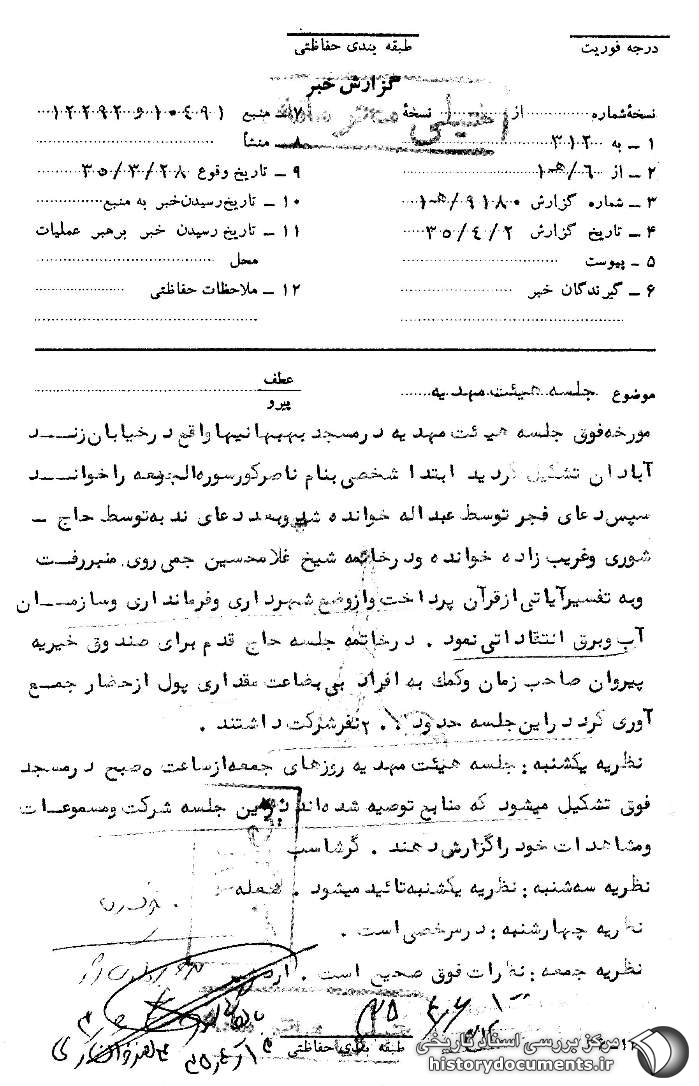 درجه فوریت
طبقه بندی حفاظتی
گزارش خبر
خیلی محرمانه
نسخهٔ شماره ........ از ........ نسخهٔ
۱ ـ به ۳۱۲
۲ ـ از ۶/ه‍۱
۳ ـ شماره گزارش ۹۱۸۰/ه‍۱
۴ ـ تاریخ گزارش ۳۵/۴/۲
۵ ـ پیوست
۶ ـ گیرندگان خبر
۷ ـ منبع
۸ ـ منشأ
۹ ـ تاریخ وقوع ۳۵/۳/۲۸
۱۰ ـ تاریخ رسیدن خبر به منبع
۱۱ ـ تاریخ رسیدن خبر برهبر عملیات
محل
۱۲ ـ ملاحظات حفاظتی
موضوع جلسه هیئت مهدیه
عطف
پیرو
مورخه فوق جلسه هیئت مهدیه درمسجد بهبهانیها واقع درخیابان زند
آبادان تشکیل گردید ابتدا شخصی بنام ناصرکور سوره الجمعه را خواند
سپس دعای فجر توسط عبداله خوانده شد وبعد دعای ندبه توسط حاج ـ
شوری وغریب زاده خوانده ودرخاتمه شیخ غلامحسین جمی روی منبررفت
وبه تفسیرآیاتی ازقرآن پرداخت وازوضع شهرداری وفرمانداری وسازمان
آب وبرق انتقاداتی نمود . درخاتمه جلسه حاج قدم برای صندوق خیریه
پیروان صاحب زمان وکمک به افراد بی بضاعت مقداری پول ازحضار جمع
آوری کرد دراین جلسه حدود نفرشرکت داشتند .
نظریه یکشنبه : جلسه هیئت مهدیه روزهای جمعه ازساعت ۵ صبح درمسجد
فوق تشکیل میشود که منابع توصیه شده اند دراین جلسه شرکت ومسموعات
ومشاهدات خود را گزارش دهند . گرشاسب
نظریه سه شنبه : نظریه یکشنبه تائید میشود . شعله
نظریه چهارشنبه : درمرخصی است .
نظریه جمعه : نظرات فوق صحیح است .
طبقه بندی حفاظتی
مرکز بررسی اسناد تاریخی
historydocuments.ir